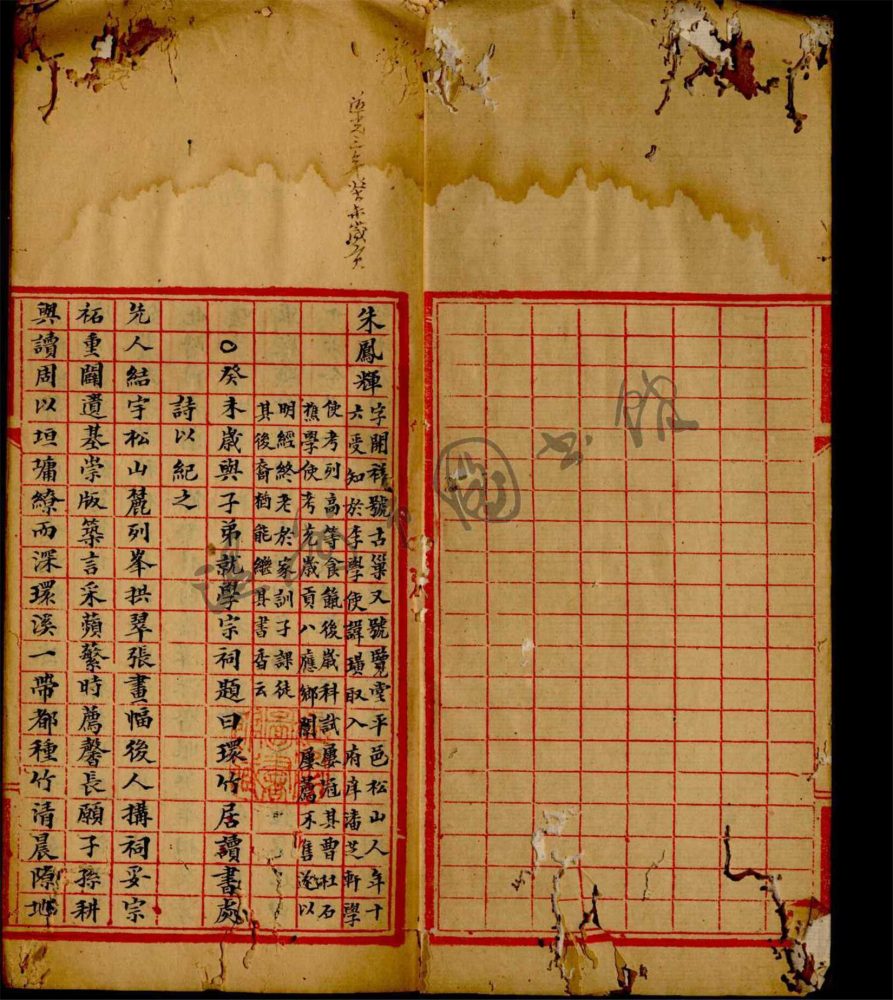 道光三年癸未歲貢
朱鳳輝 字開祥號古巢又號覽雲平邑松山人年十
六受知於李學使諱璜取入府庠潘芝軒學
使考列高等食餼後歲科試屢冠其曹杜石
樵學使考充歲貢八應鄉闈屢薦不售遂以
明經終老於家訓子課徒
其後裔猶能繼其書香云
○癸未歲與子弟就學宗祠題曰環竹居讀書處
詩以紀之
先人結宇松山麓列峯拱翠張畫幅後人搆祠妥宗
祏重闢遺基崇版築言采蘋蘩時薦馨長願子孫耕
與讀周以垣墉繚而深環溪一帶都種竹清晨隙地